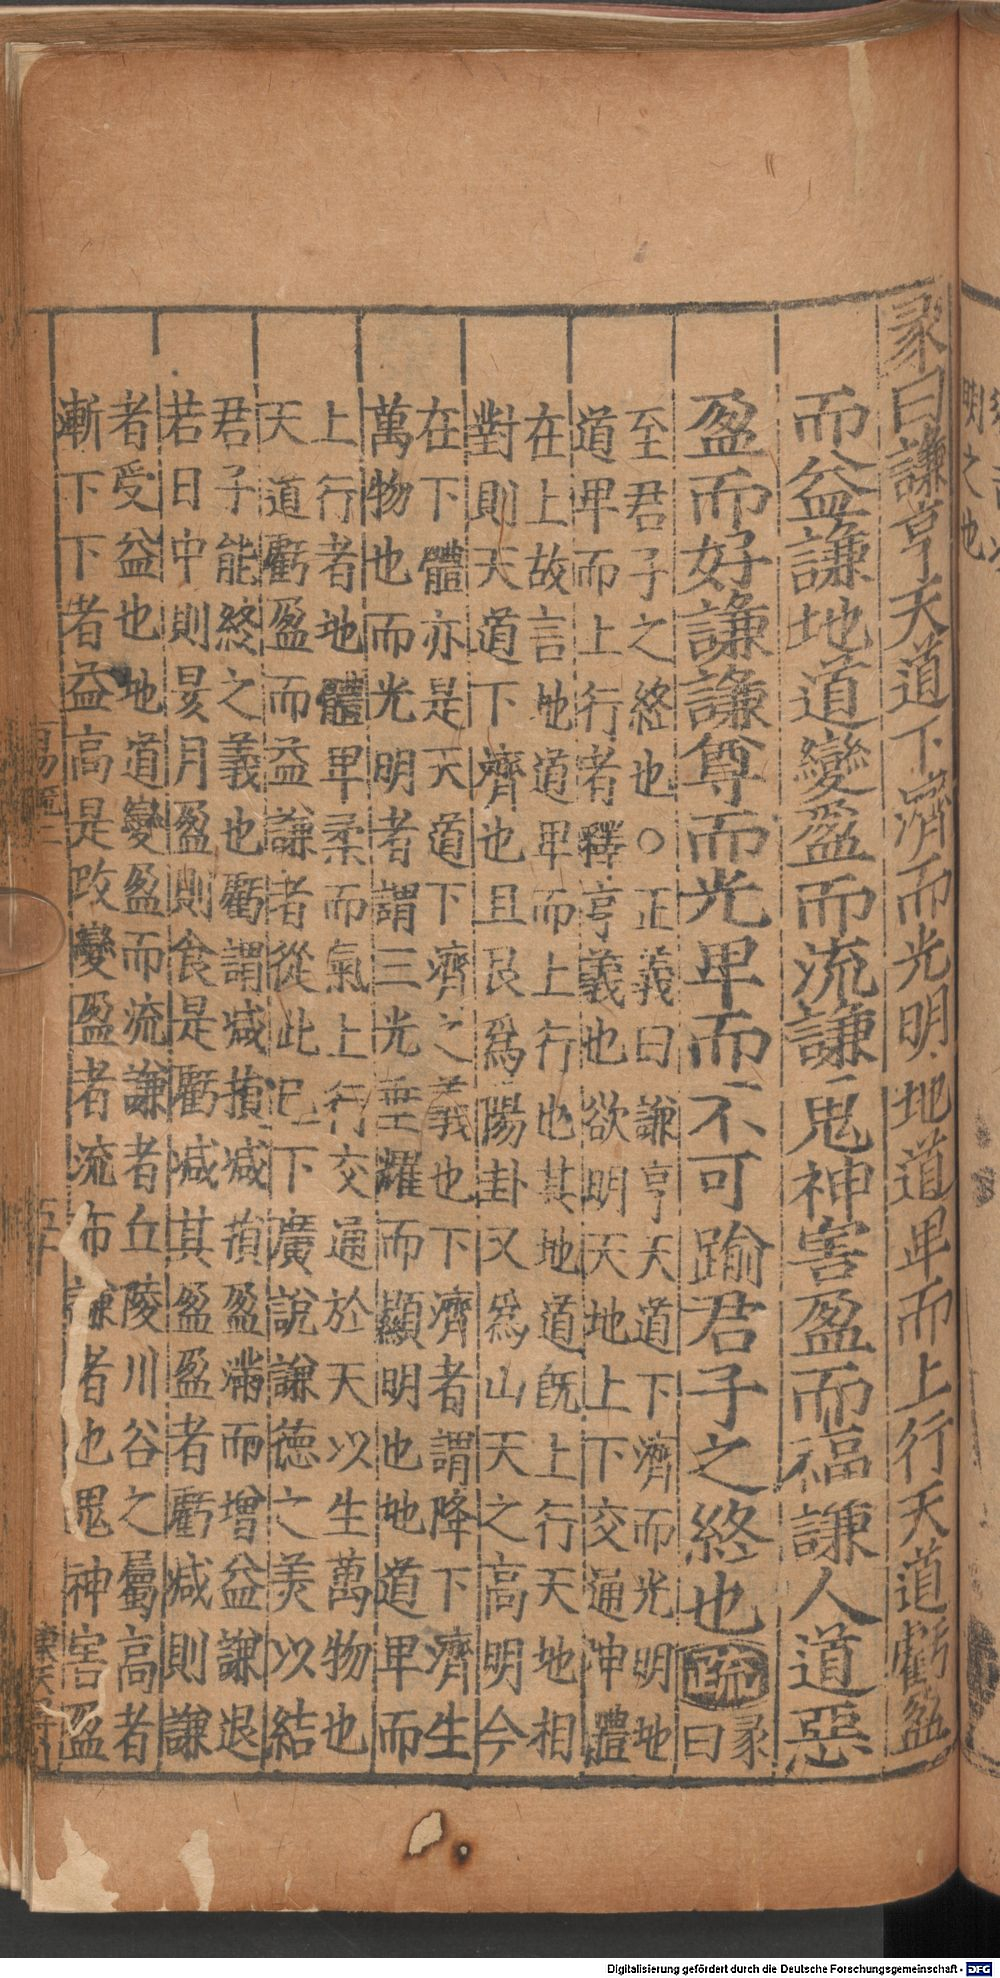 彖曰謙亨天道下濟而光明地道卑而上行天道虧盈
而益謙地道變盈而流謙鬼神害盈而福謙人道惡
盈而好謙謙尊而光卑而不可踰君子之終也疏彖曰
至君子之終也○正義曰謙亨天道下濟而光明地
道卑而上行者釋亨義也欲明天地上下交通坤體
在上故言地道卑而上行也其地道旣上行天地相
對則天道下濟也且艮爲陽卦又爲山天之高明今
在下體亦是天道下濟之義也下濟者謂降下濟生
萬物也而光明者謂三光垂耀而顯明也地道卑而
上行者地體卑柔而氣上行交通於天以生萬物也
天道虧盈而益謙者從此已下廣說謙德之美以結
君子能終之義也虧謂减損减損盈滿而增益謙退
若日中則昃月盈則食是虧减其盈盈者虧减則謙
者受益也地道變盈而流謙者丘陵川谷之屬高者
漸下下者益高是改變盈者流布謙者也鬼神害盈
明之也
Digitalisierung gefördert durch die Deutsche Forschungsgemeinschaft - DFG